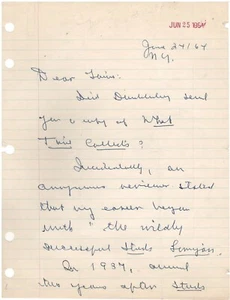 JUN 25 1964
June 24/64
N.Y.
Dear
Did send
you a copy of What
?
Incidentally, an
anonymous reviewer stated
that my career began
with "the wildly
successful Studs Lonigan.
In 1937, almost
two years after Studs